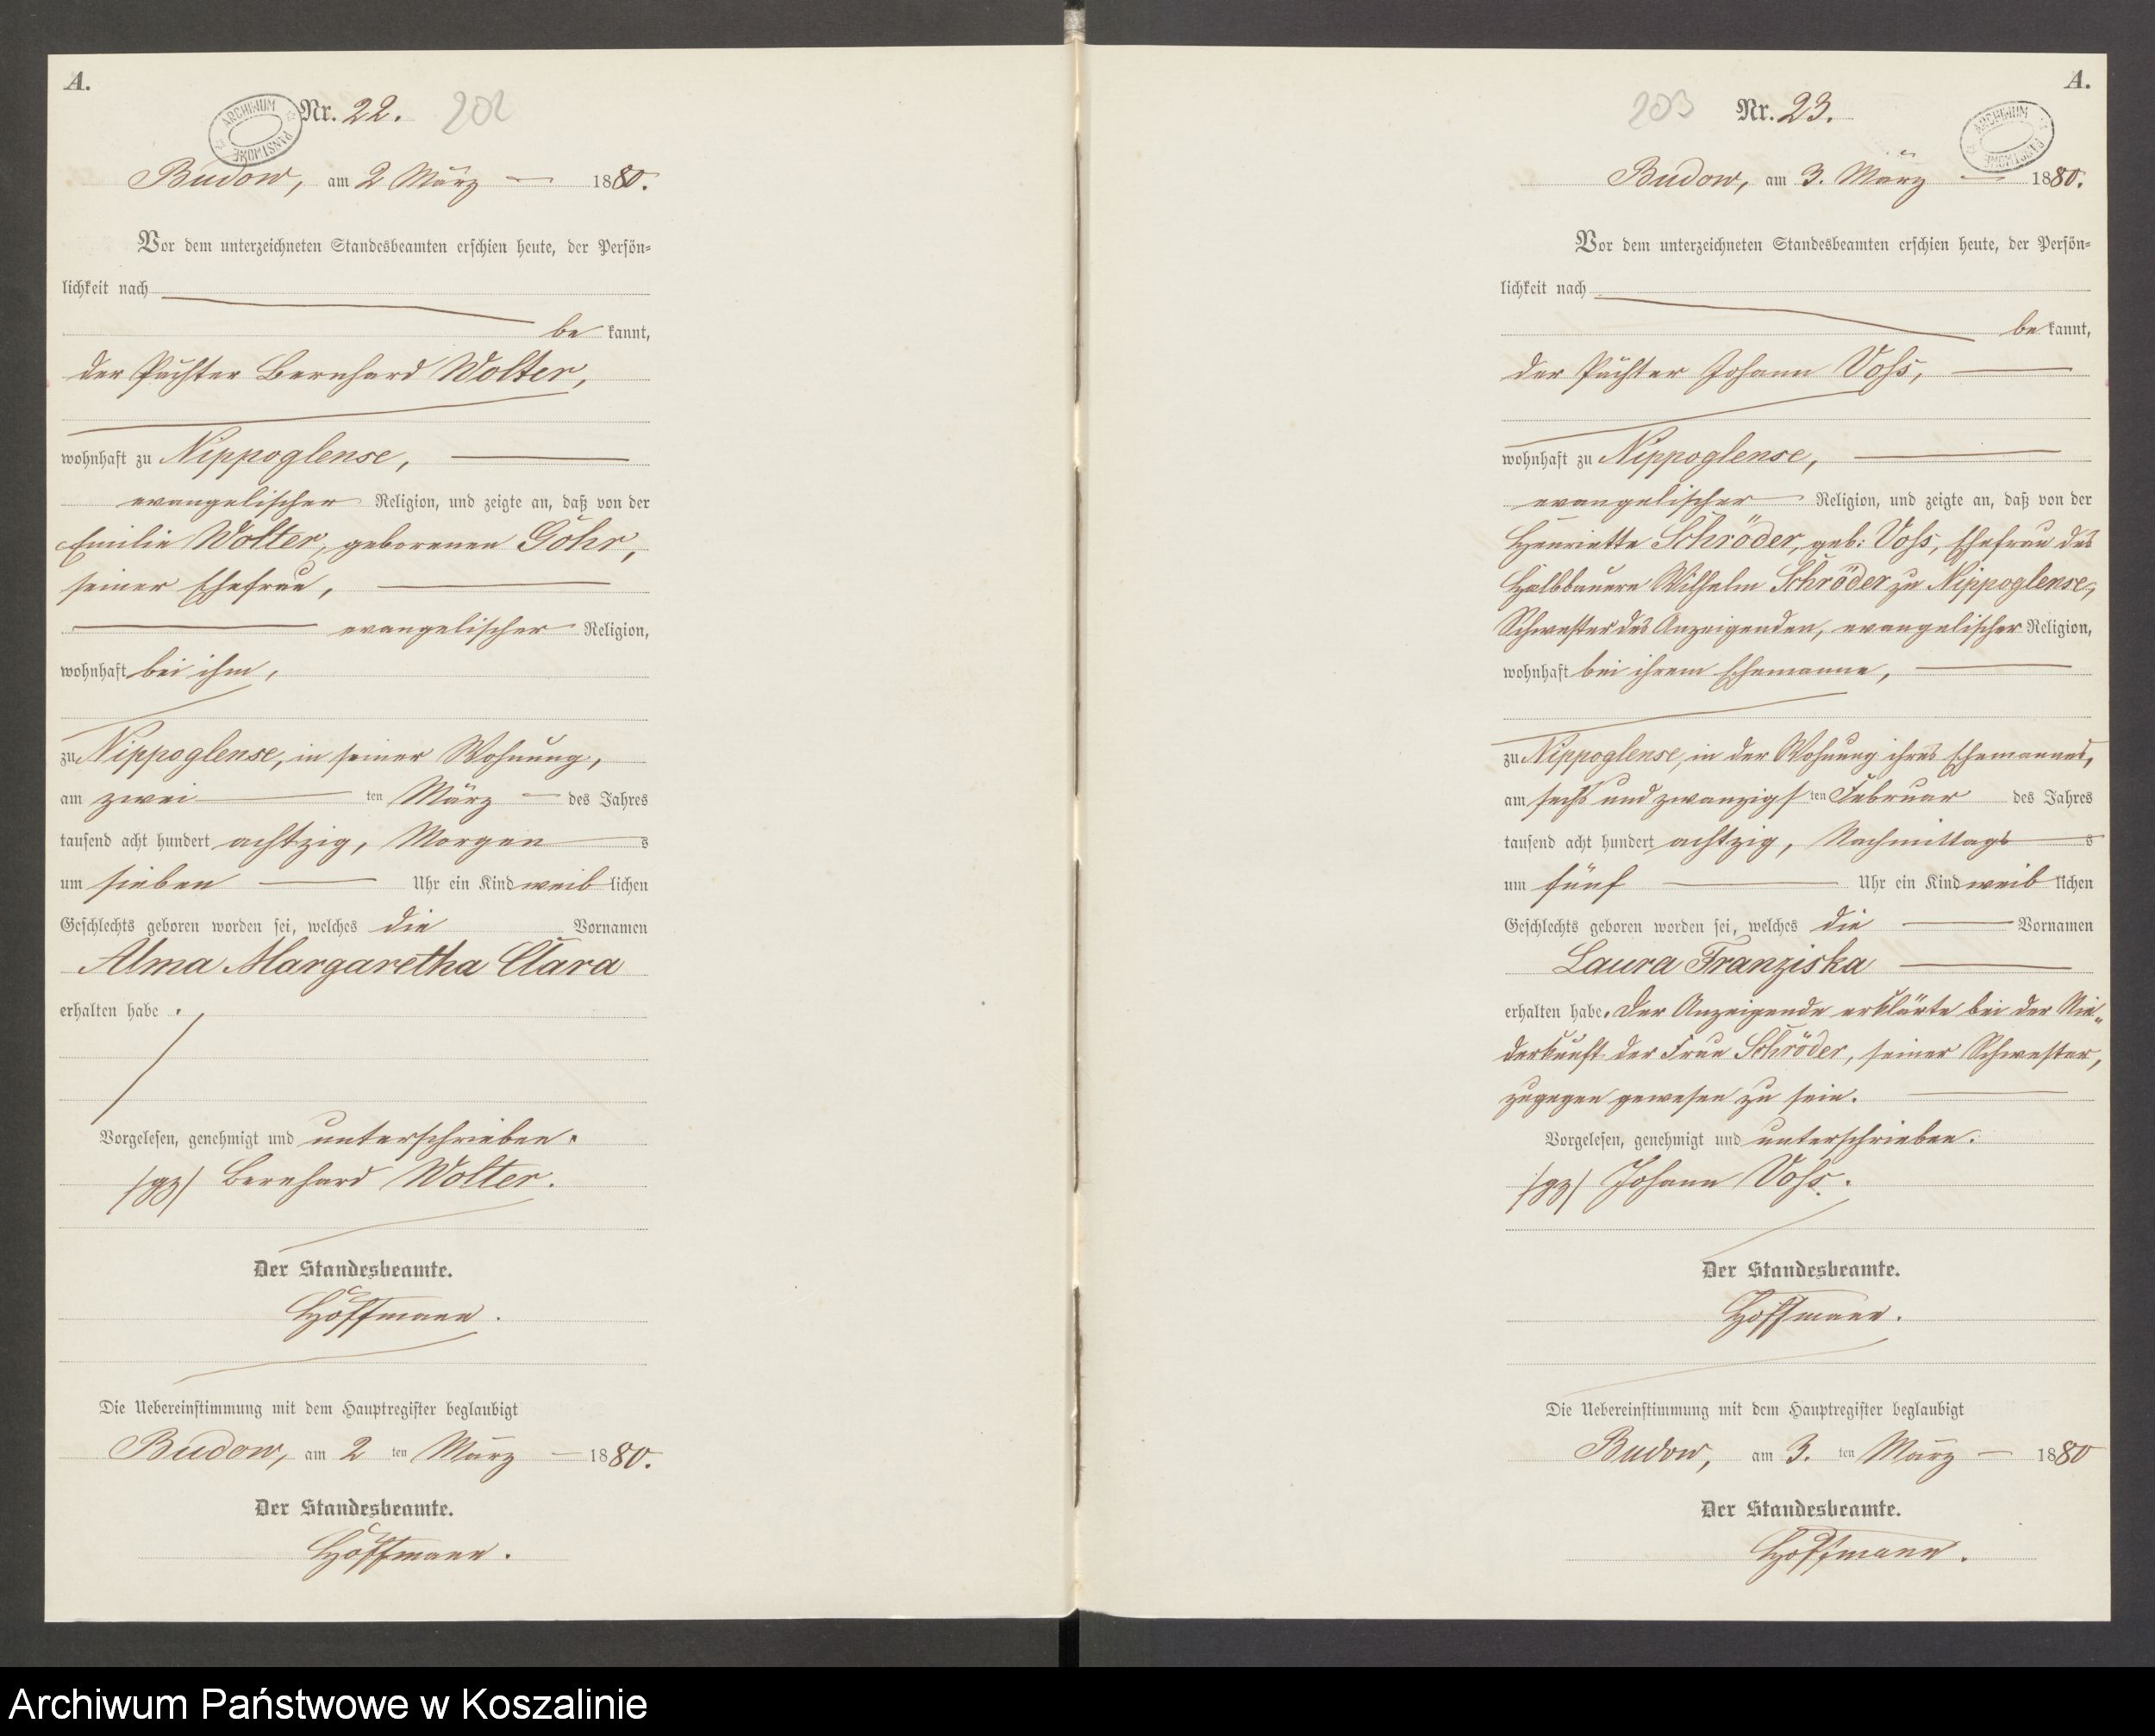 A.
ARCHIWUM PAŃSTWOWE
Nr. 22. 202
Budow, am 2 März 1880.
Vor dem unterzeichneten Standesbeamten erschien heute, der Persön-
lichkeit nach
be kannt,
der Pächter Bernhard Wolter,
wohnhaft zu Nippoglense,
evangelischer Religion, und zeigte an, daß von der
Emilie Wolter, geborenen Göhr,
seiner Ehefrau,
evangelischer Religion,
wohnhaft bei ihm,
zu Nippoglense, in seiner Wohnung,
am zwei ten März des Jahres
tausend acht hundert achtzig, Morgen s
um sieben Uhr ein Kind weib lichen
Geschlechts geboren worden sei, welches die Vornamen
Alma Margaretha Clara
erhalten habe.
Vorgelesen, genehmigt und unterschrieben.
/gz/ Bernhard Wolter.
Der Standesbeamte.
Hoffmann.
Die Uebereinstimmung mit dem Hauptregister beglaubigt
Budow, am 2 ten März 1880.
Der Standesbeamte.
Hoffmann.
A.
203 Nr. 23.
ARCHIWUM PAŃSTWOWE
Budow, am 3. März 1880.
Vor dem unterzeichneten Standesbeamten erschien heute, der Persön-
lichkeit nach
be kannt,
der Pächter Johann Voss,
wohnhaft zu Nippoglense,
evangelischer Religion, und zeigte an, daß von der
Henriette Schröder, geb: Voss, Ehefrau des
Halbbauern Wilhelm Schröder zu Nippoglense,
Schwester des Anzeigenden, evangelischer Religion,
wohnhaft bei ihrem Ehemanne,
zu Nippoglense, in der Wohnung ihres Ehemannes,
am sechs und zwanzigs ten Februar des Jahres
tausend acht hundert achtzig, Nachmittags s
um fünf Uhr ein Kind weib lichen
Geschlechts geboren worden sei, welches die Vornamen
Laura Franziska
erhalten habe. Der Anzeigende erklärte bei der Nie-
derkunft der Frau Schröder, seiner Schwester,
zugegen gewesen zu sein.
Vorgelesen, genehmigt und unterschrieben.
/gz/ Johann Voss.
Der Standesbeamte.
Hoffmann.
Die Uebereinstimmung mit dem Hauptregister beglaubigt
Budow, am 3. ten März 1880
Der Standesbeamte.
Hoffmann.
Archiwum Państwowe w Koszalinie